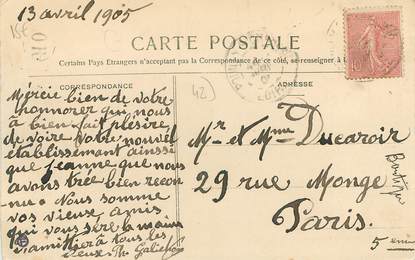 13 avril 1905
CARTE POSTALE
Certains Pays Etrangers n'acceptant pas la Correspondance de ce côté, se renseigner à la
CORRESPONDANCE
ADRESSE
42
Mercie bien de votre
qui nous
à bien fait plesire
de voire votre nouvel
etablissement ainssi
que Jeanne que nous
avons trée bien recon
nu. Nous somme
vos vieux amis
qui vous sère la mains
d'amittier à tous les
deux. Ph. Galichon
Mr et Mme Ducaroir
29 rue Monge
Paris.
5 eme